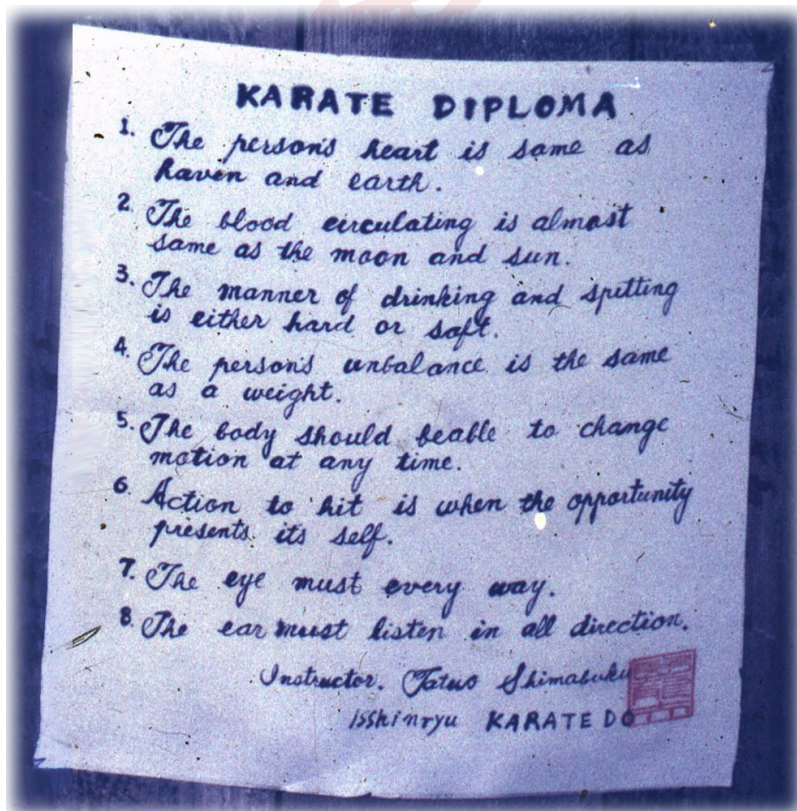 KARATE DIPLOMA
1. The person's heart is same as
haven and earth.
2. The blood circulating is almost
same as the moon and sun.
3. The manner of drinking and spitting
is either hard or soft.
4. The person's unbalance is the same
as a weight.
5. The body should beable to change
motion at any time.
6. Action to hit is when the opportunity
presents its self.
7. The eye must every way.
8. The ear must listen in all direction.
Instructor. Tatuo Shimabuku
isshinryu KARATE DO